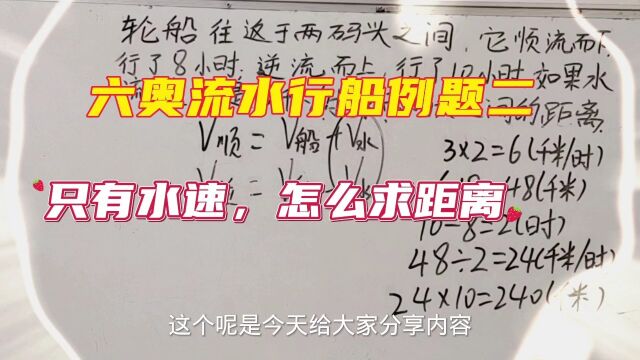 轮船往返于两码头之间,它顺流而下
行了8小时,逆流而上,行了10小时,如果水
六奥流水行船例题二
距离
V顺=V船+V水
3×2=6(千米/时)
只有水速,怎么求距离
48(千米)
10-8=2(时)
48÷2=24(千米/时)
24×10=240(千米)
这个呢是今天给大家分享内容